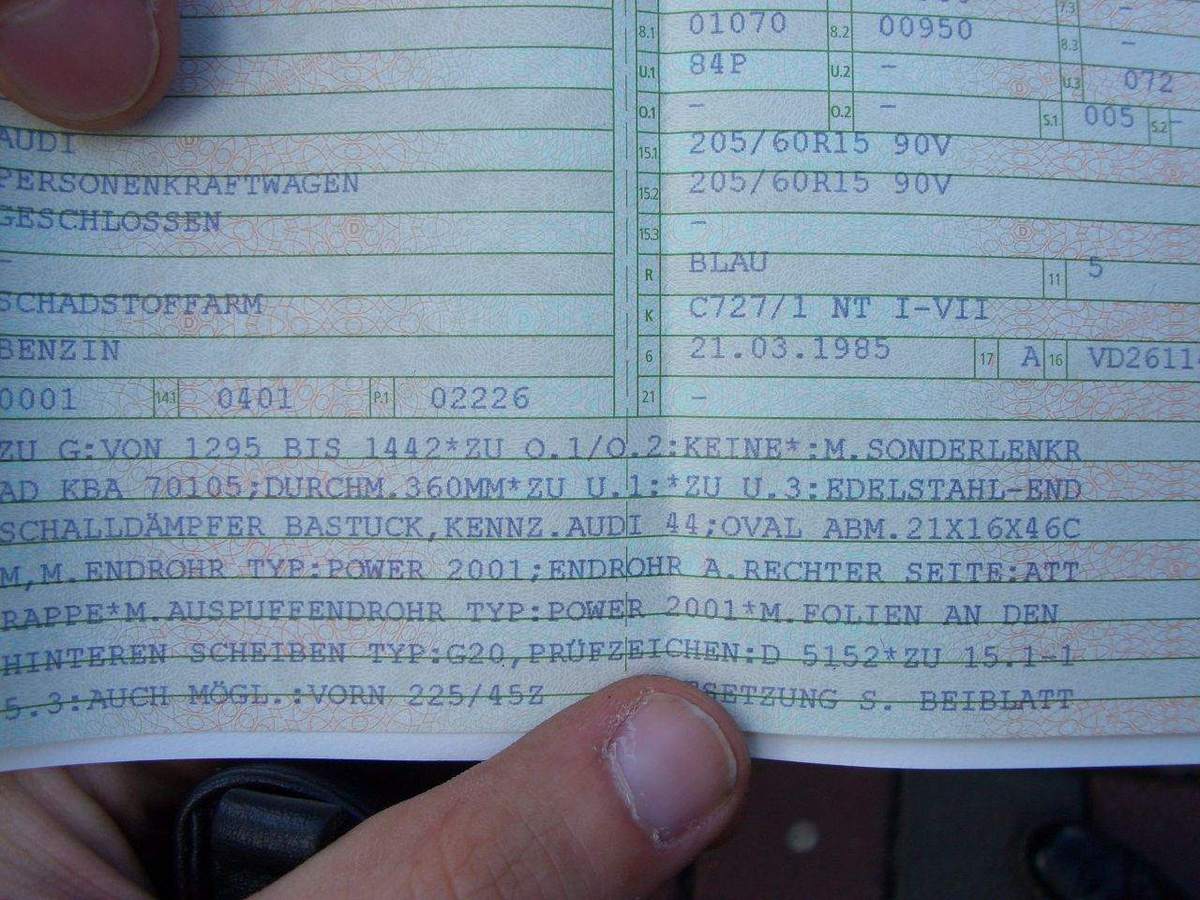 8.1 01070 8.2 00950 8.3 -
U.1 84P U.2 - U.3 072
O.1 - O.2 - S.1 005 S.2 -
AUDI 15.1 205/60R15 90V
PERSONENKRAFTWAGEN 15.2 205/60R15 90V
GESCHLOSSEN 15.3 -
- R BLAU 11 5
SCHADSTOFFARM K C727/1 NT I-VII
BENZIN 6 21.03.1985 17 A 16 VD2611
0001 14.1 0401 P.1 02226 21 -
ZU G:VON 1295 BIS 1442*ZU O.1/O.2:KEINE*:M.SONDERLENKR
AD KBA 70105;DURCHM.360MM*ZU U.1:*ZU U.3:EDELSTAHL-END
SCHALLDÄMPFER BASTUCK,KENNZ.AUDI 44;OVAL ABM.21X16X46C
M,M.ENDROHR TYP:POWER 2001;ENDROHR A.RECHTER SEITE:ATT
RAPPE*M.AUSPUFFENDROHR TYP:POWER 2001*M.FOLIEN AN DEN
HINTEREN SCHEIBEN TYP:G20,PRÜFZEICHEN:D 5152*ZU 15.1-1
5.3:AUCH MÖGL.:VORN 225/45Z SETZUNG S. BEIBLATT